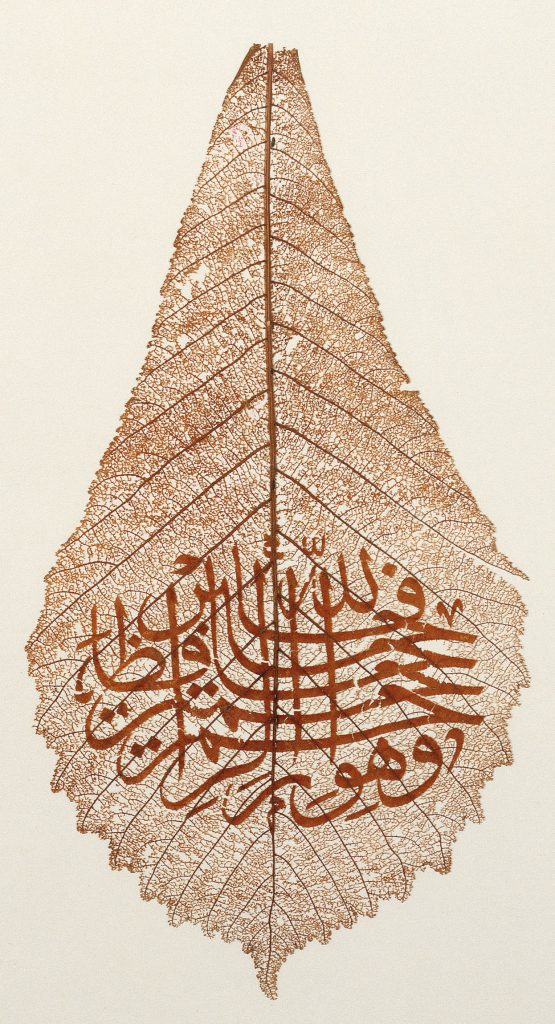 فالله خير حافظا وهو ارحم الراحمين